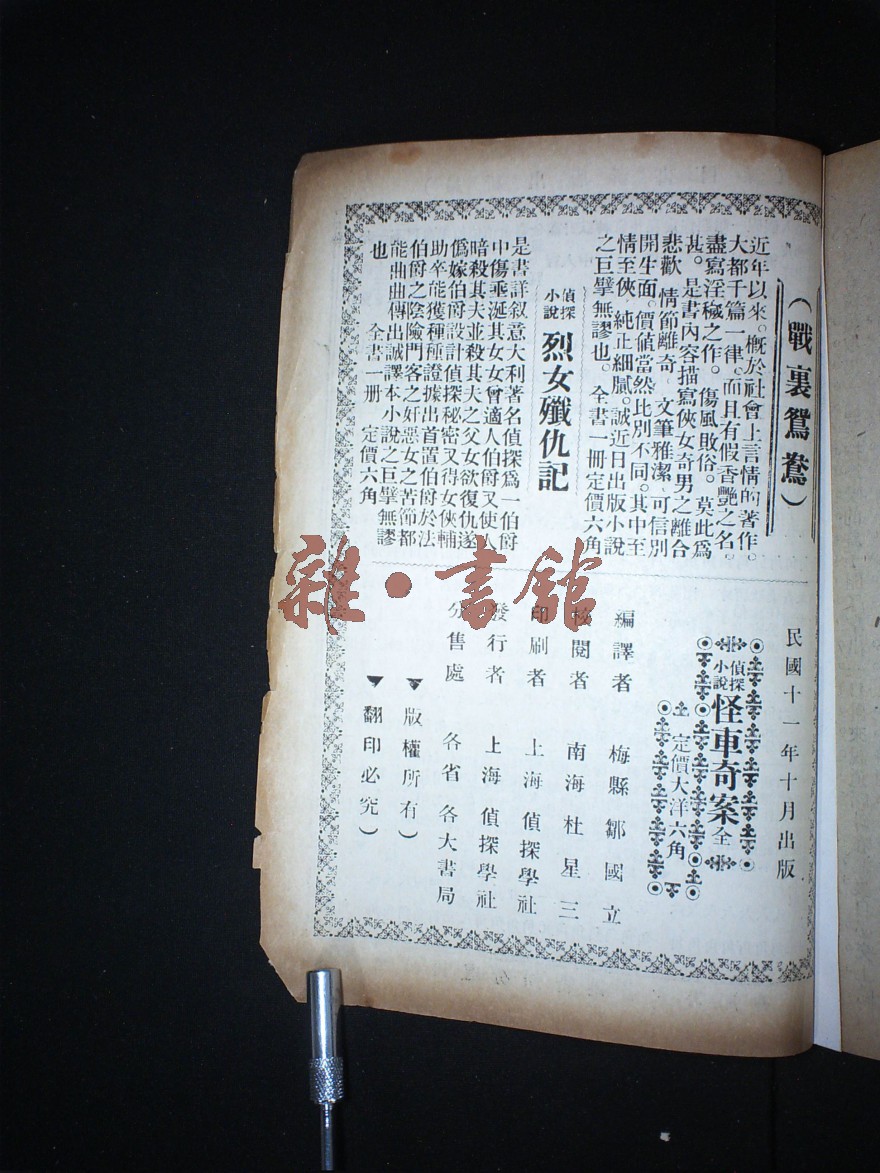 （戰裏鴛鴦）
近年以來。概於社會上言情的著作。
大都千篇一律。而且有假香艷之名。
盡寫淫穢之作。傷風敗俗。莫此爲
甚。是書內容描寫俠女奇男之離合
悲歡 情節離奇 文筆雅潔 可信別
開生面。價值當然比別不同。其中至
情至俠 純止細膩。誠近日出版小說
之巨擘無謬也。 全書一冊定價六角
偵探小說 烈女殲仇記
是書詳叙意大利著名偵探爲一伯爵
中傷乘涎其女女曾適人伯爵又使人
暗殺其夫並殺其夫之父女欲復仇遂
僞嫁伯爵設計偵探秘密又得女俠輔
助卒能獲種種證據出首置伯爵於法
伯爵之陰險門客之奸惡女之苦節都
能曲曲傳出誠譯本小說之巨擘無謬
也 全書一册 定價六角
民國十一年十月出版
偵探小說 怪車奇案 全
定價大洋六角
編譯者 梅縣鄒國立
校閱者 南海杜星三
印刷者 上海偵探學社
發行者 上海偵探學社
分售處 各省各大書局
版權所有）
翻印必究）
雜·書館